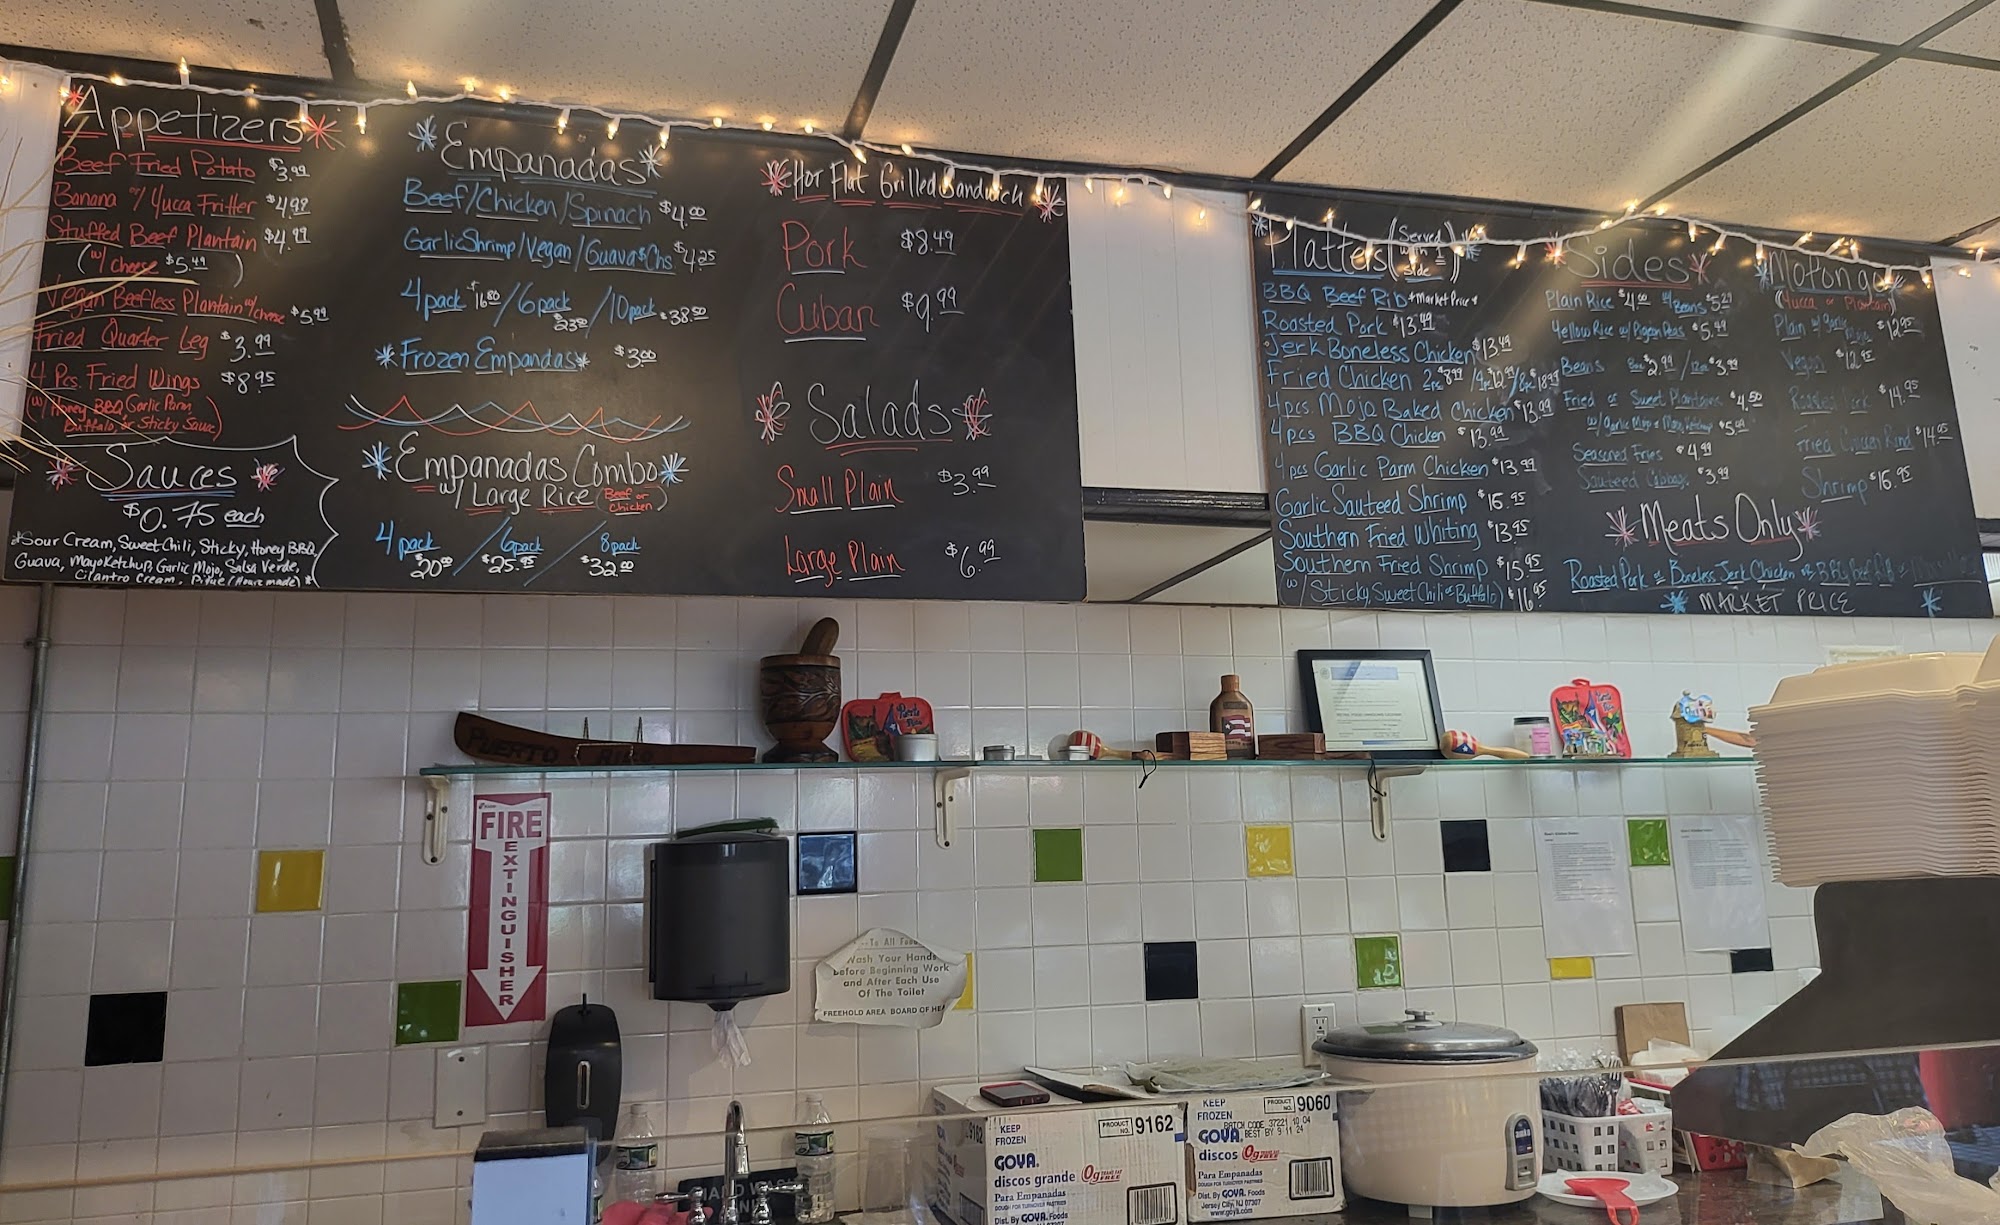 Appetizers
Beef Fried Potato $3.99
Banana or Yucca Fritter $4.99
Stuffed Beef Plantain $4.99
(w/ cheese $5.49)
Vegan Beefless Plantain w/ cheese $5.99
Fried Quarter Leg $3.99
4 Pcs. Fried Wings $8.95
(w/ Honey BBQ, Garlic Parm,
Buffalo, or Sticky Sauce)
Sauces
$0.75 each
*Sour Cream, Sweet Chili, Sticky, Honey BBQ,
Guava, MayoKetchup, Garlic Mojo, Salsa Verde,
Cilantro Cream, Pique (Homemade)*
Empanadas
Beef/Chicken/Spinach $4.00
Garlic Shrimp/Vegan/Guava & Chs $4.25
4 pack $16.80 / 6 pack $23.50 / 10 pack $38.50
Frozen Empandas $3.00
Empanadas Combo
w/ Large Rice (Beef or Chicken)
4 pack $20.00 / 6 pack $25.95 / 8 pack $32.00
Hot Flat Grilled Sandwich
Pork $8.49
Cuban $9.99
Salads
Small Plain $3.99
Large Plain $6.99
Platters (Served with 1 side)
BBQ Beef Rib *Market Price*
Roasted Pork $13.49
Jerk Boneless Chicken $13.49
Fried Chicken 2pc $8.99 / 4pc $12.99 / 8pc $18.99
4pcs Mojo Baked Chicken $13.99
4pcs BBQ Chicken $13.99
4pcs Garlic Parm Chicken $13.99
Garlic Sauteed Shrimp $15.95
Southern Fried Whiting $13.95
Southern Fried Shrimp $15.95
(w/ Sticky, Sweet Chili or Buffalo) $16.95
Sides
Plain Rice $4.00 w/ Beans $5.29
Yellow Rice w/ Pigeon Peas $5.49
Beans 8oz $2.99 / 12oz $3.99
Fried or Sweet Plantains $4.50
w/ Garlic Mojo or Mayo Ketchup $5.99
Seasoned Fries $4.99
Sauteed Cabbage $3.99
Mofongo
(Yucca or Plantain)
Plain w/ Garlic Mojo $12.95
Vegan $12.95
Roasted Pork $14.95
Fried Chicken Rind $14.95
Shrimp $16.95
Meats Only
Roasted Pork or Boneless Jerk Chicken or BBQ Beef Rib or
MARKET PRICE
PUERTO RICO
FIRE
EXTINGUISHER
To All Food
Wash Your Hands
Before Beginning Work
and After Each Use
Of The Toilet
FREEHOLD AREA BOARD OF HEA
9162
KEEP
FROZEN
PRODUCT NO. 9162
GOYA
discos grande 0g
Para Empanadas
DOUGH FOR TURNOVER PASTRIES
Dist. By GOYA Foods
Jersey City, NJ 07307
KEEP
FROZEN
PRODUCT NO. 9060
BATCH CODE 37221 10 04
BEST BY 9 11 24
GOYA
discos 0g
Para Empanadas
DOUGH FOR TURNOVER PASTRIES
Dist. By GOYA Foods
Jersey City, NJ 07307
www.goya.com